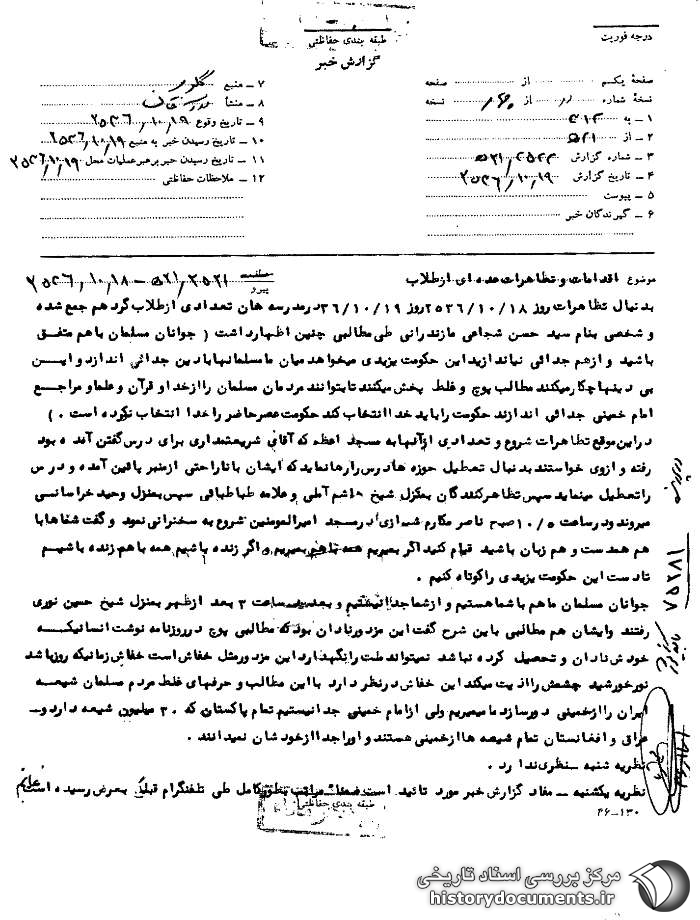 درجه فوریت
طبقه بندی حفاظتی
گزارش خبر
صفحه یکم از صفحه
نسخه شماره از نسخه
۱ – به ۳۱۲
۲ – از ۵۲۱
۳ – شماره گزارش
۴ – تاریخ گزارش ۲۵۳۶/۱۰/۱۹
۵ – پیوست
۶ – گیرندگان خبر
۷ – منبع
۸ – منشأ
۹ – تاریخ وقوع ۲۵۳۶/۱۰/۱۹
۱۰ – تاریخ رسیدن خبر به منبع ۲۵۳۶/۱۰/۱۹
۱۱ – تاریخ رسیدن خبر برهبر عملیات محل ۲۵۳۶/۱۰/۱۹
۱۲ – ملاحظات حفاظتی
موضوع اقدامات و تظاهرات عده ای از طلاب
پیرو ۲۵۲۱/۵۲۱ – ۲۵۳۶/۱۰/۱۸
بدنبال تظاهرات روز ۲۵۳۶/۱۰/۱۸ روز ۳۶/۱۰/۱۹ درمدرسه خان تعدادی ازطلاب گردهم جمع شده
و شخصی بنام سید حسن شجاعی مازندرانی طی مطالبی چنین اظهارداشت ( جوانان مسلمان باهم متفق
باشید و ازهم جدائی نیاندازید این حکومت یزیدی میخواهد میان ما مسلمانها بادین جدائی اندازد و ایـن
بی دینها چکار میکنند مطالب پوچ و غلط پخش میکنند تابتوانند مردمان مسلمان را ازخدا و قرآن و علما و مراجـع
امام خمینی جدائی اندازند حکومت را باید خدا انتخاب کند حکومت عصرحاضر را خدا انتخاب نکرده است . )
دراین موقع تظاهرات شروع و تعدادی ازآنها به مسجد اعظم که آقای شریعتمداری برای درس گفتن آمده بود
رفته و ازوی خواستند بدنبال تعطیل حوزه ها درس را رها نماید که ایشان باناراحتی ازمنبر پائین آمده و درس
را تعطیل مینماید سپس تظاهرکنندگان بمنزل شیخ هاشم آملی و علامه طباطبائی سپس بمنزل وحید خراسانی
میروند و در ساعت ۱۰/۵ صبح ناصر مکارم شیرازی در مسجد امیرالمومنین شروع به سخنرانی نمود و گفت شماها با
هم همدست و هم زبان باشید قیام کنید اگر بمیریم همه باهم بمیریم و اگر زنده باشیم همه باهم زنده باشیـم
تادست این حکومت یزیدی را کوتاه کنیم .
جوانان مسلمان ماهم با شما هستیم و ازشما جدا نیستیم و بعد ساعت ۳ بعد ازظهر بمنزل شیخ حسین نوری
رفتند و ایشان هم مطالبی باین شرح گفت این مزدور نادان بود که مطالبی پوچ در روزنامه نوشت انسانیکـه
خودش نادان و تحصیل کرده نباشد نمیتواند ملت را نگهدارد این مزدور مثل خفاش است خفاش زمانیکه روز باشد
نور خورشید چشمش را اذیت میکند این خفاش درنظر دارد با این مطالب و حرفهای غلط مردم مسلمان شیعـه
ایران را ازخمینی دور سازد ما میمیریم ولی ازامام خمینی جدا نیستیم تمام پاکستان که ۳۰ میلیون شیعه دارد و ـ
عراق و افغانستان تمام شیعه ها ازخمینی هستند و اورا جدا ازخودشان نمیدانند .
نظریه شنبه – نظری ندارد .
نظریه یکشنبه – مفاد گزارش خبر مورد تائید است ضمناً مراتب بطور کامل طی تلفنگرام قبلاً بعرض رسیده است
۴۶-۱۳۰
طبقه بندی حفاظتی
۸۵۲۸۱
مرکز بررسی اسناد تاریخی
historydocuments.ir